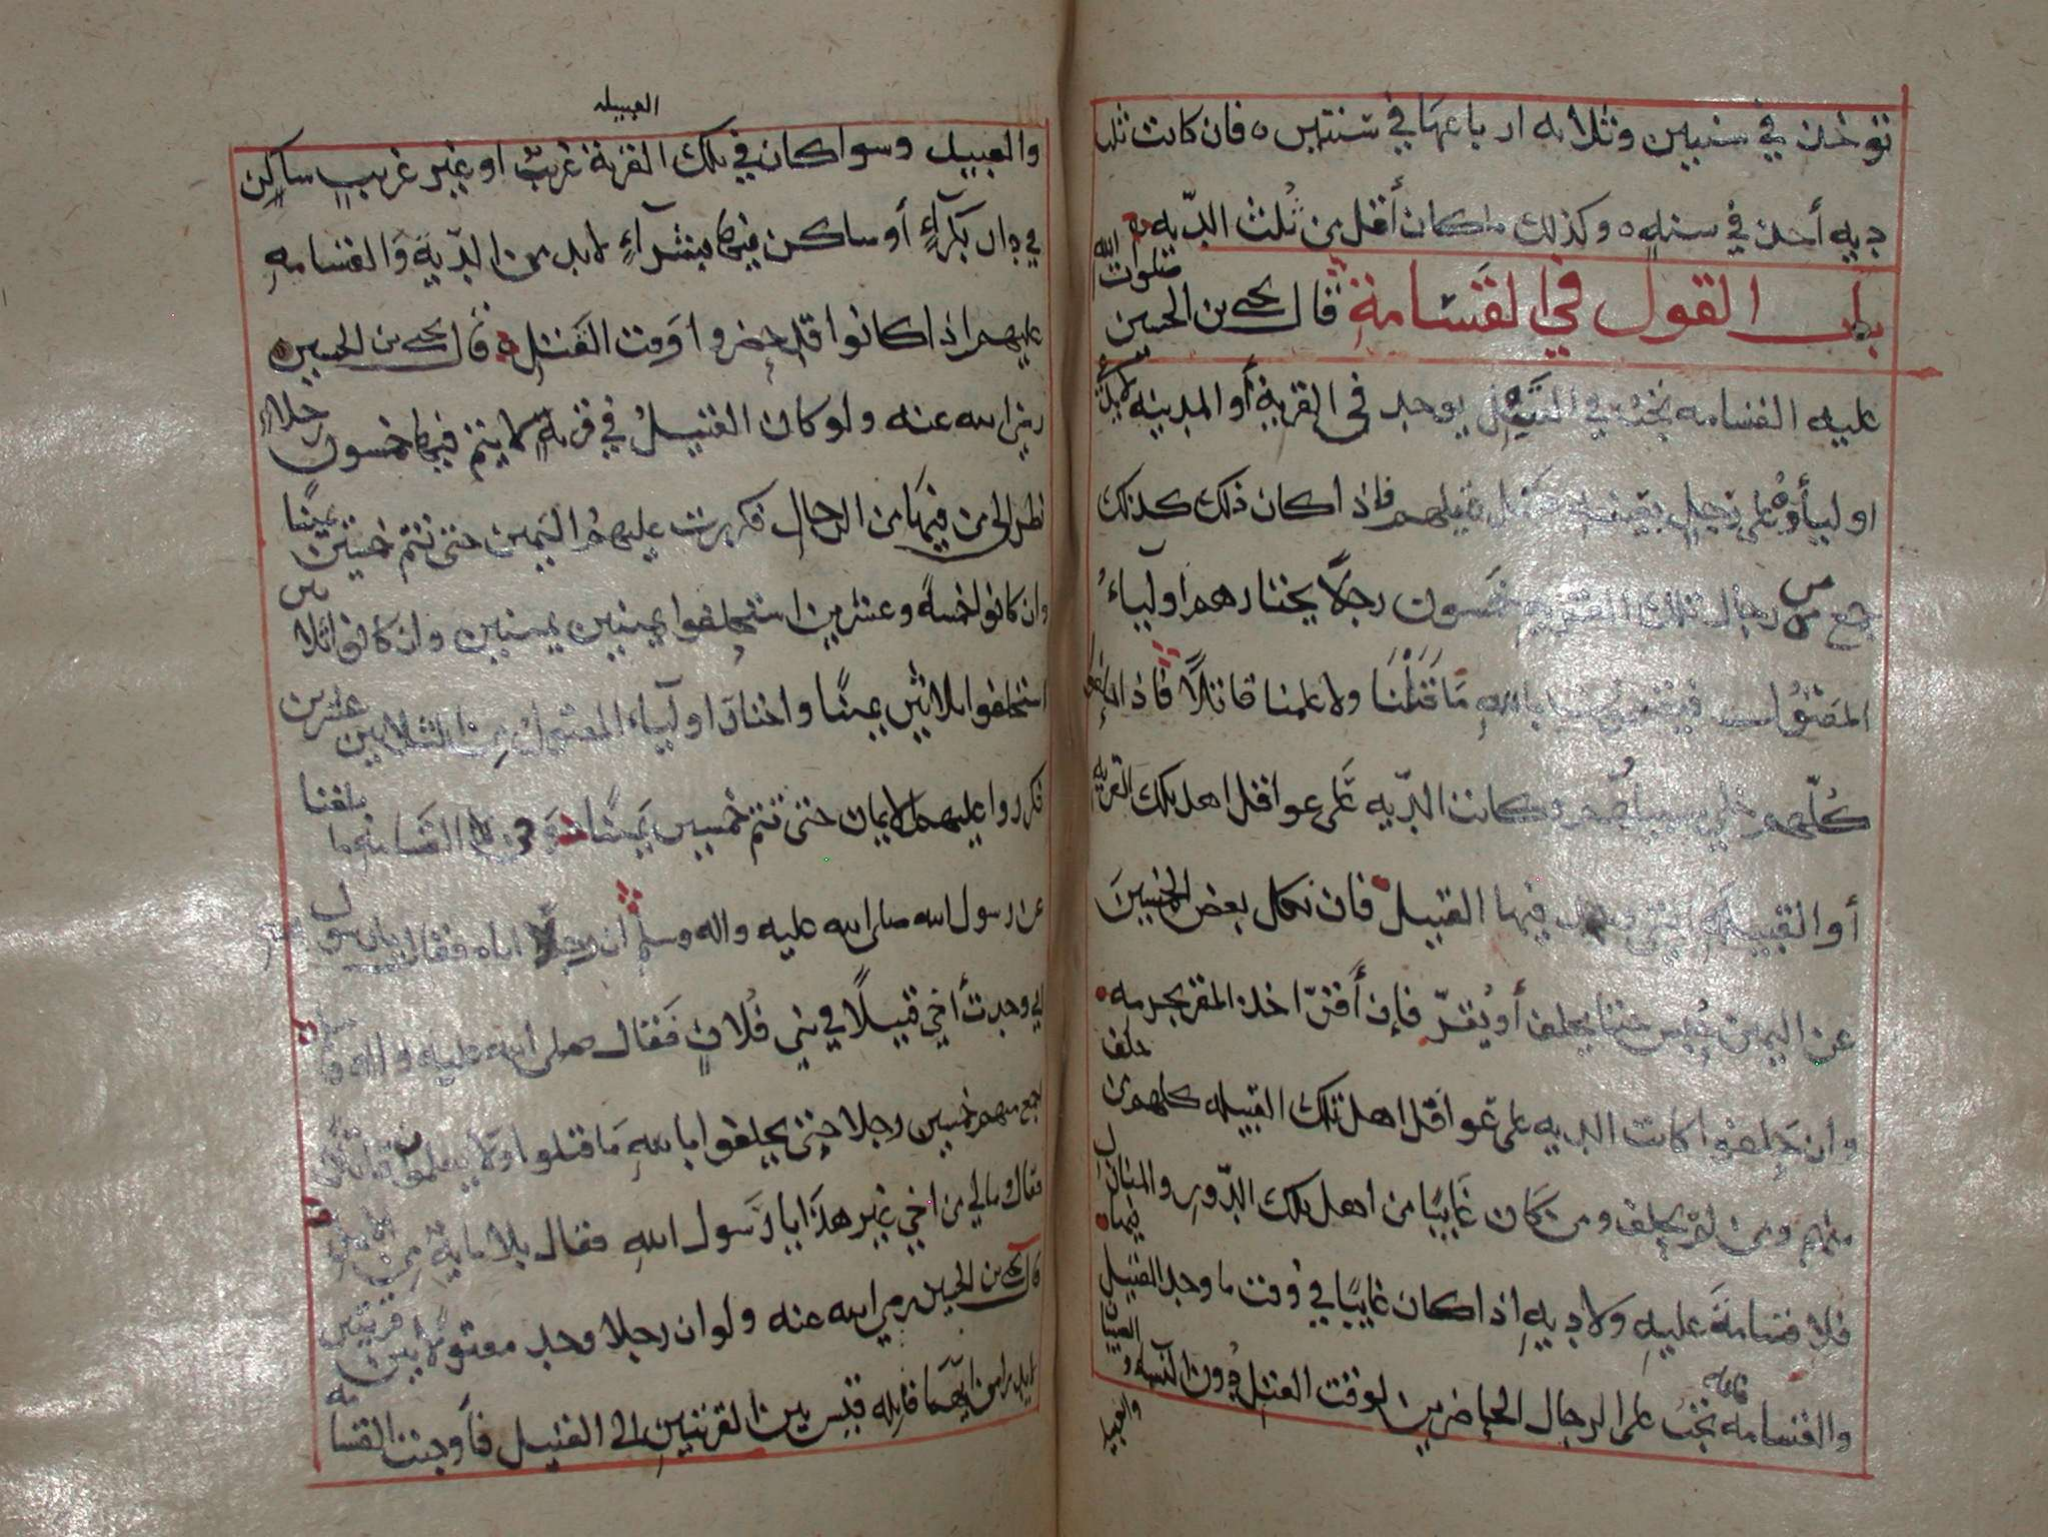 تؤخذ في سنتين وثلاثه ارباعها في سنتين ٥ فان كانت ثلث
ديه أخذ في سنه ٥ وكذلك ما كان أقل من ثلث الدّيه
باب القول في القسامة قال يحيى بن الحسين صلوات الله
عليه القسامه تجب في القتيل يوجد في القرية أو المدينه لا يدعي
اولياؤه على رجل بعينه قتل قتيلهم فاذا كان ذلك كذلك
جمع من رجال تلك القريه خمسون رجلًا يختارهم اولياء
المقتول فيقسمون بالله ما قتلنا ولا علمنا قاتلًا فاذا حلفوا
كلّهم خلي سبيلهم وكانت الدّيه على عواقل اهل تلك القريه
أو القبيله التي وجد فيها القتيل فان نكل بعض الخمسين
عن اليمين حبس حتى يحلف أو يقرّ فإن أقرّ اخذ المقر بجرمه
وان حلفوا كانت الديه على عواقل اهل تلك القبيله كلهم من حلف
منهم ومن لم يحلف ومن كان غايبًا من اهل تلك الدّور والمنازل
فلا قسامة عليه ولا ديه إذا كان غايبًا في وقت ما وجد القتيل فيها
والقسامه تجب على الرجال الحاضرين لوقت القتل دون النساء والصبيان
والعبيد
العبيد
والعبيد وسوا كان في تلك القرية غريب او غير غريب ساكن
في دار بكراءٍ أو ساكن فيها بشراءٍ لا بد من الدّية والقسامه
عليهم اذا كانوا قد حضروا وقت القتل قال يحيى بن الحسين
رضي الله عنه ولو كان القتيل في قريه لا يتم فيها خمسون رجلا
نظر الى من فيها من الرجال فكررت عليهم اليمين حتى تتم خمسين يمينًا
وان كانوا خمسة وعشرين استحلفوا يمينين يمينين وان كانوا ثلاثين
استحلفوا ثلاثين يمينًا واختار اولياء المقتول من الثلاثين عشرين
فكرروا عليهم الايمان حتى تتم خمسين يمينًا القسامه ما بلغنا
عن رسول الله صلى الله عليه واله وسلم ان رجلًا اتاه فقال يا رسول
الله وجدت أخي قتيلًا في بني فلان فقال صلى الله عليه واله
اجمع منهم خمسين رجلا حتى يحلفوا بالله ما قتلوا ولا يعلمون قاتلًا
فقال وما لي من اخي غير هذا يا رسول الله فقال بلا ماية من الابل
قال يحيى بن الحسين رضي الله عنه ولو ان رجلا وجد مقتولًا بين قريتين
لا يدرا من ايهما قاتله قيس بين القريتين الى القتيل فأوجبت القسامه